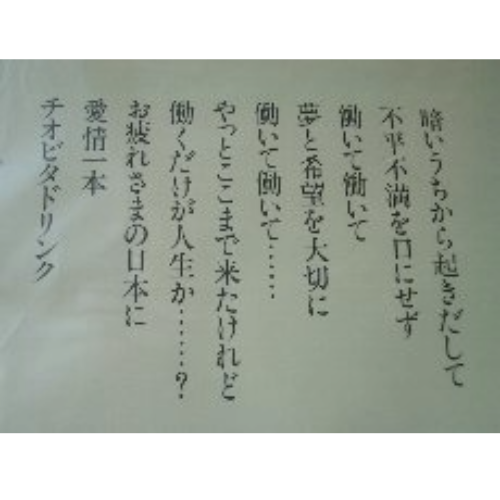 暗いうちから起きだして
不平不満を口にせず
働いて働いて
夢と希望を大切に
働いて働いて……
やっとここまで来たけれど
働くだけが人生か……？
お疲れさまの日本に
愛情一本
チオビタドリンク